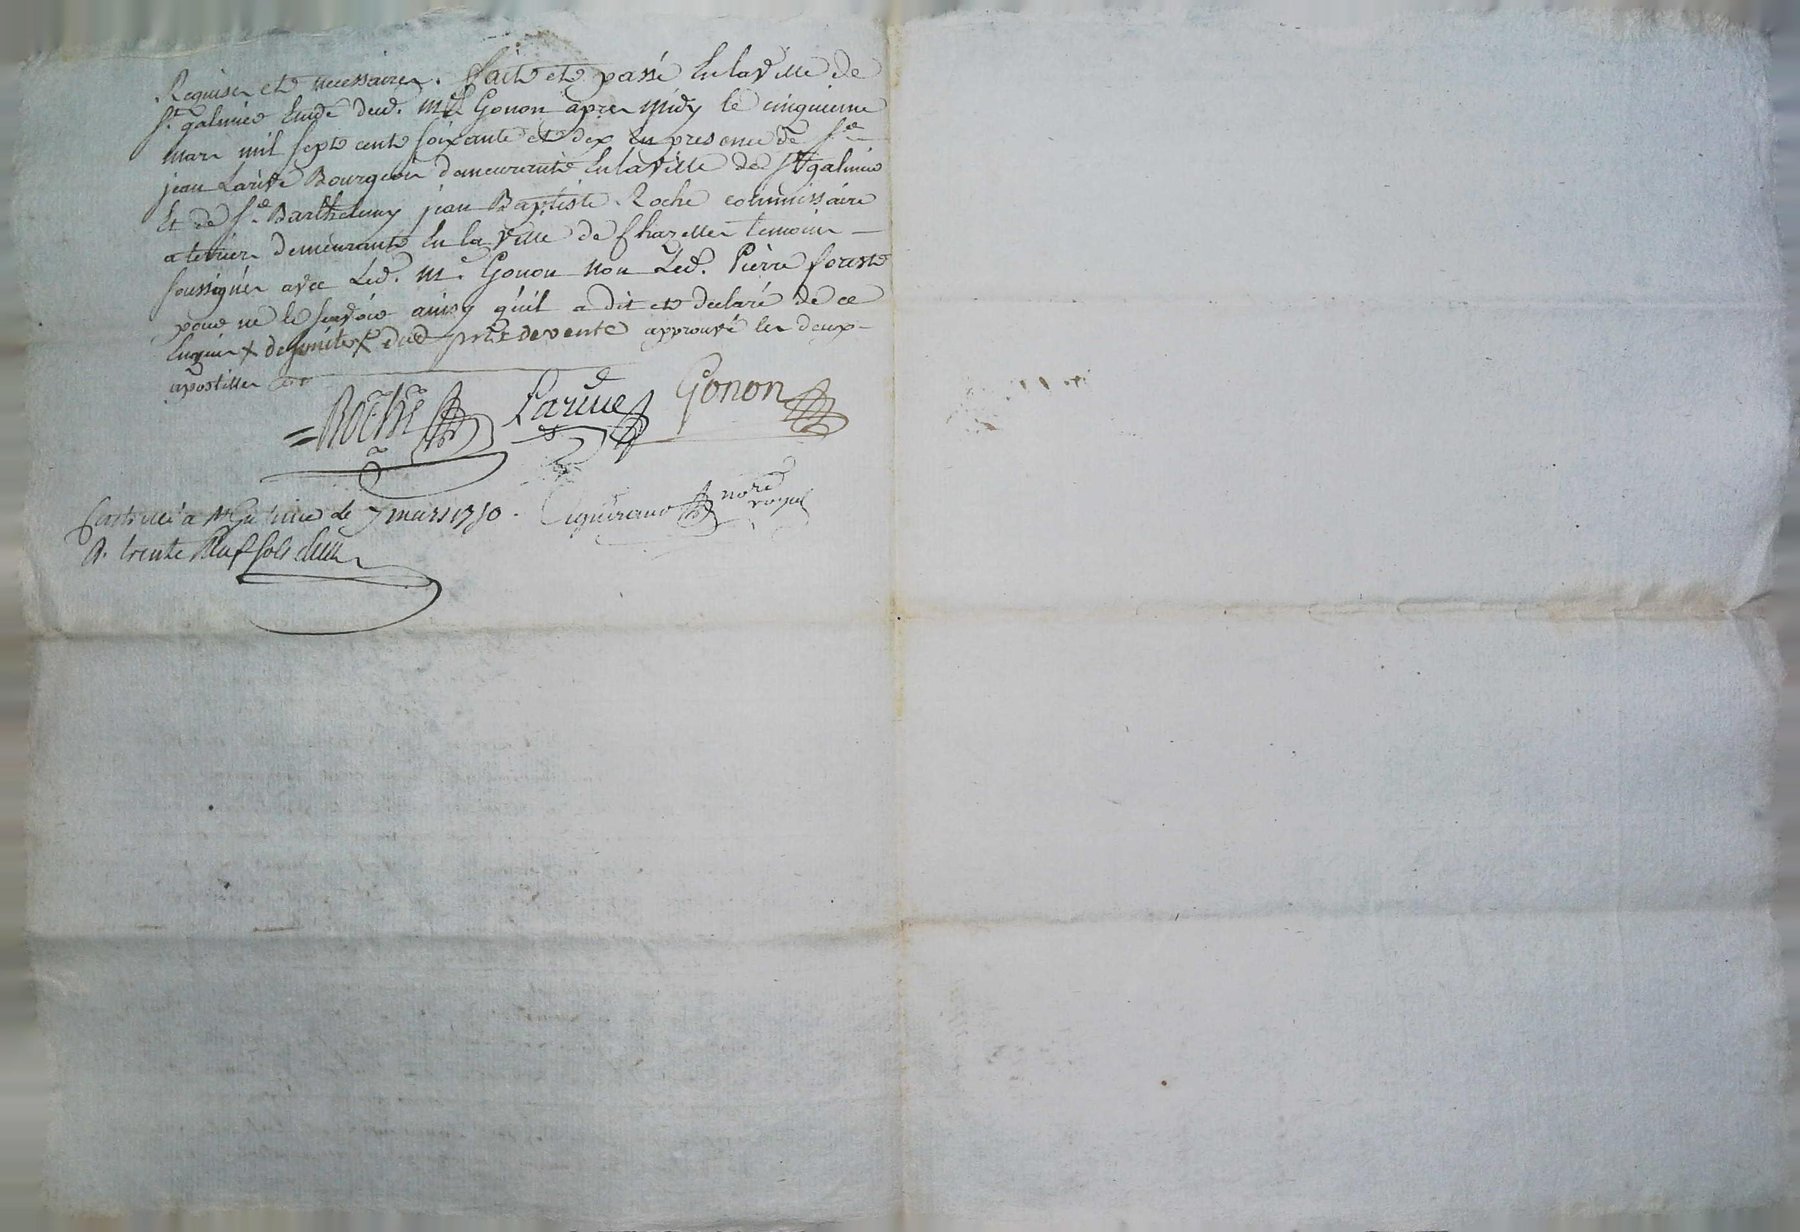 Requises et necessaires. fait et passé En la ville de
St galmier Etude dud. Me Gonon apres midy le cinquieme
mars mil sept cent soixante et dix en presence de Sr
jean Larive Bourgeois demeurant En la ville de St galmier
Et de Sr Barthelemy jean Baptiste Roche commissaire
a terrier demeurant En la ville de Chazelles temoins
soussignés avec Led. Me Gonon non Led. Pierre forest
pour ne le scavoir ainsy qu'il a dit et declaré de ce
Enquis x de x dud de vente approuvé les deux
apostilles
Roche Larive Gonon
a St Galmier le 7 mars 1770. nore royal
R. trente neuf sols